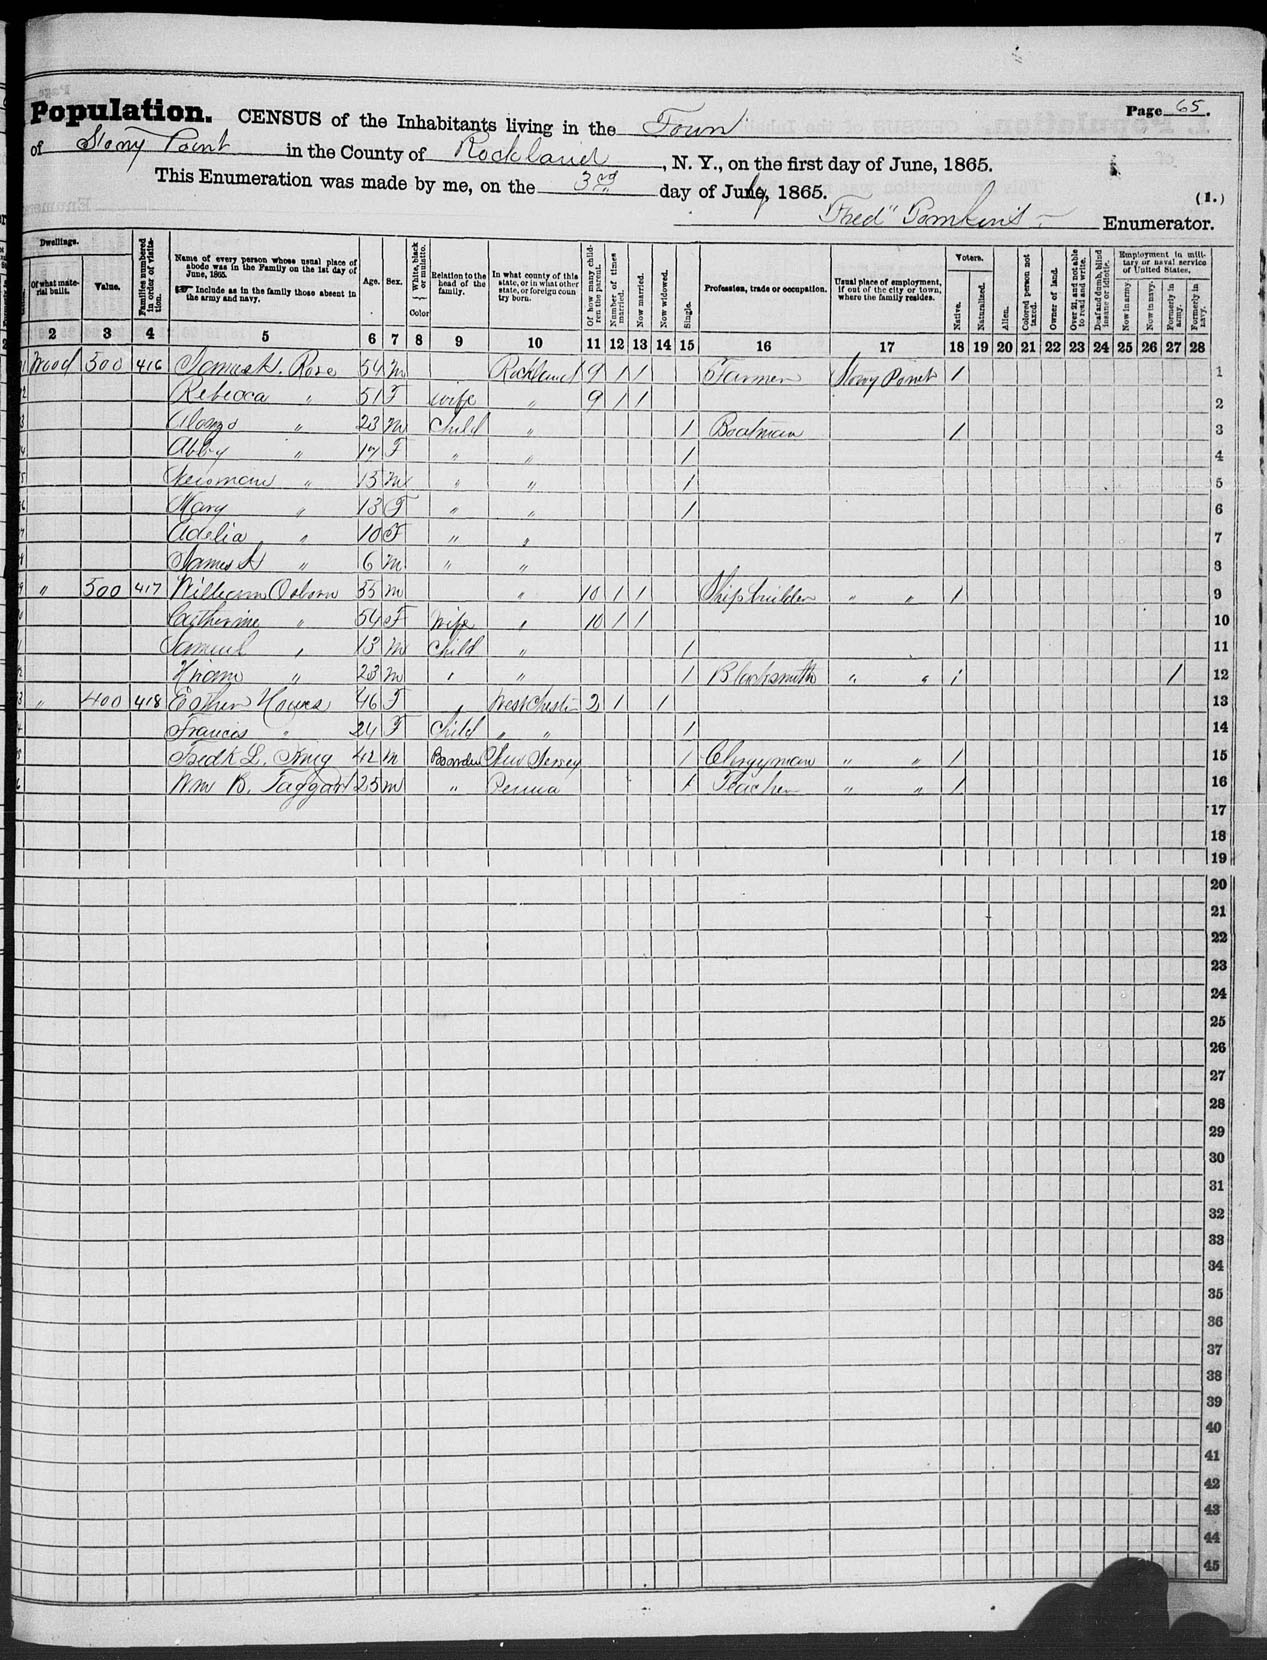 Population. CENSUS of the Inhabitants living in the Town Page 65.
of Stony Point in the County of Rockland, N. Y., on the first day of June, 1865.
This Enumeration was made by me, on the 3rd day of July, 1865. (1.)
Fred" Tomkins Enumerator.
Dwellings.
Of what material built.
Value.
Families numbered in order of visitation.
Name of every person whose usual place of abode was in the Family on the 1st day of June, 1865.
Include as in the family those absent in the army and navy.
Age.
Sex.
White, black or mulatto.
Color
Relation to the head of the family.
In what county of this state, or in what other state, or foreign country born.
Of how many children the parent.
Number of times married.
Now married.
Now widowed.
Single.
Profession, trade or occupation.
Usual place of employment, if out of the city or town, where the family resides.
Voters.
Native.
Naturalized.
Alien.
Colored person not taxed.
Owner of land.
Over 21, and not able to read and write.
Deaf and dumb, blind insane or idiotic.
Employment in military or naval service of United States.
Now in army.
Now in navy.
Formerly in army.
Formerly in navy.
2 3 4 5 6 7 8 9 10 11 12 13 14 15 16 17 18 19 20 21 22 23 24 25 26 27 28
Wood 500 416 James A. Rose 54 M Rockland 9 1 1 Farmer Stony Point 1 1
Rebecca " 51 F Wife " 9 1 1 2
Alonzo " 23 M Child " 1 Boatman 1 3
Abby " 17 F " " 1 4
Neioman " 15 M " " 1 5
Mary " 13 F " " 1 6
Adelia " 10 F " " 7
James A " 6 M " " 8
" 500 417 William Osborn 55 M " 10 1 1 Shipbuilder " " 1 9
Catherine " 54 F Wife " 10 1 1 10
Samuel " 13 M Child " 1 11
Hiram " 23 M " " 1 Blacksmith " " 1 1 12
" 400 418 Esther Howes 46 F " Westchester 2 1 1 13
Francis " 24 F Child " " 1 14
Fredk L. King 42 M Boarder New Jersey 1 Clergyman " " 1 15
Wm B. Taggart 25 M " Penna 1 Teacher " " 1 16
17
18
19
20
21
22
23
24
25
26
27
28
29
30
31
32
33
34
35
36
37
38
39
40
41
42
43
44
45